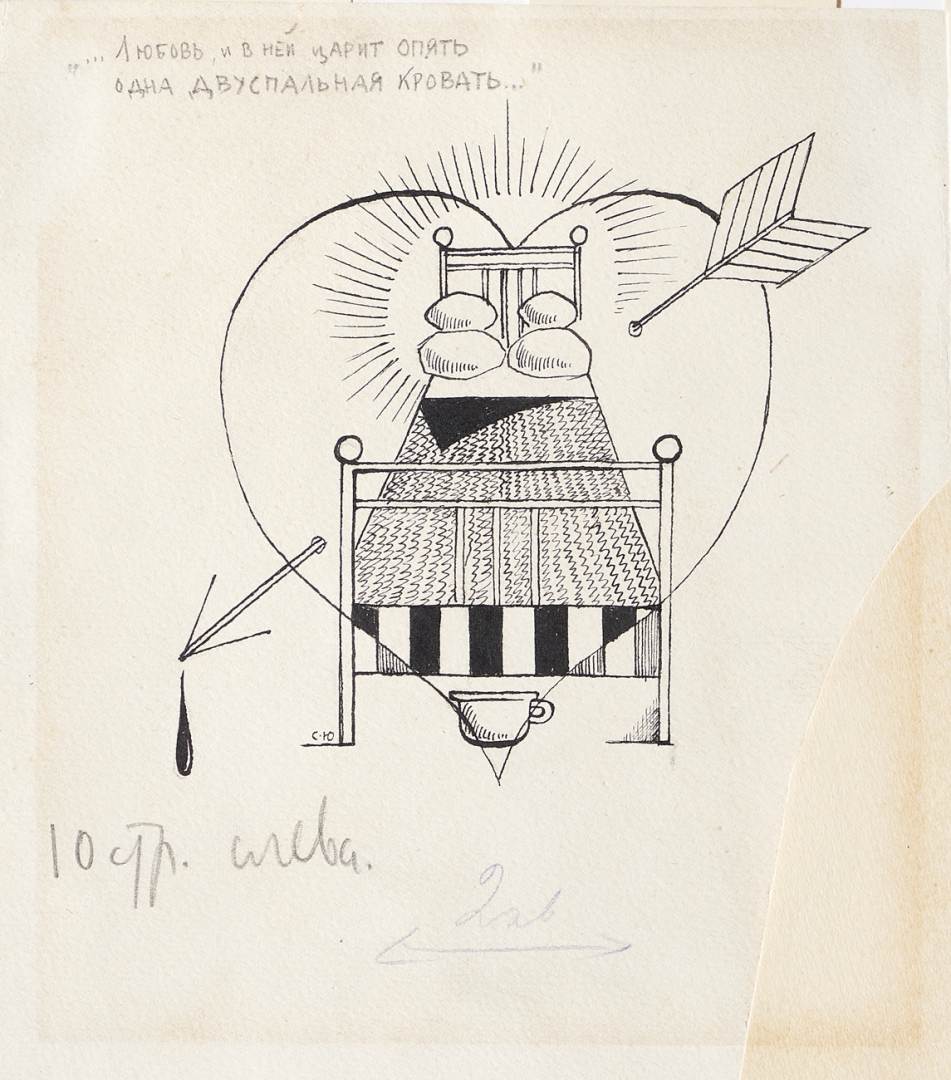 "... Любовь, и в ней царит опять
одна двуспальная кровать..."
С·Ю
10 стр. слева.
2 кв